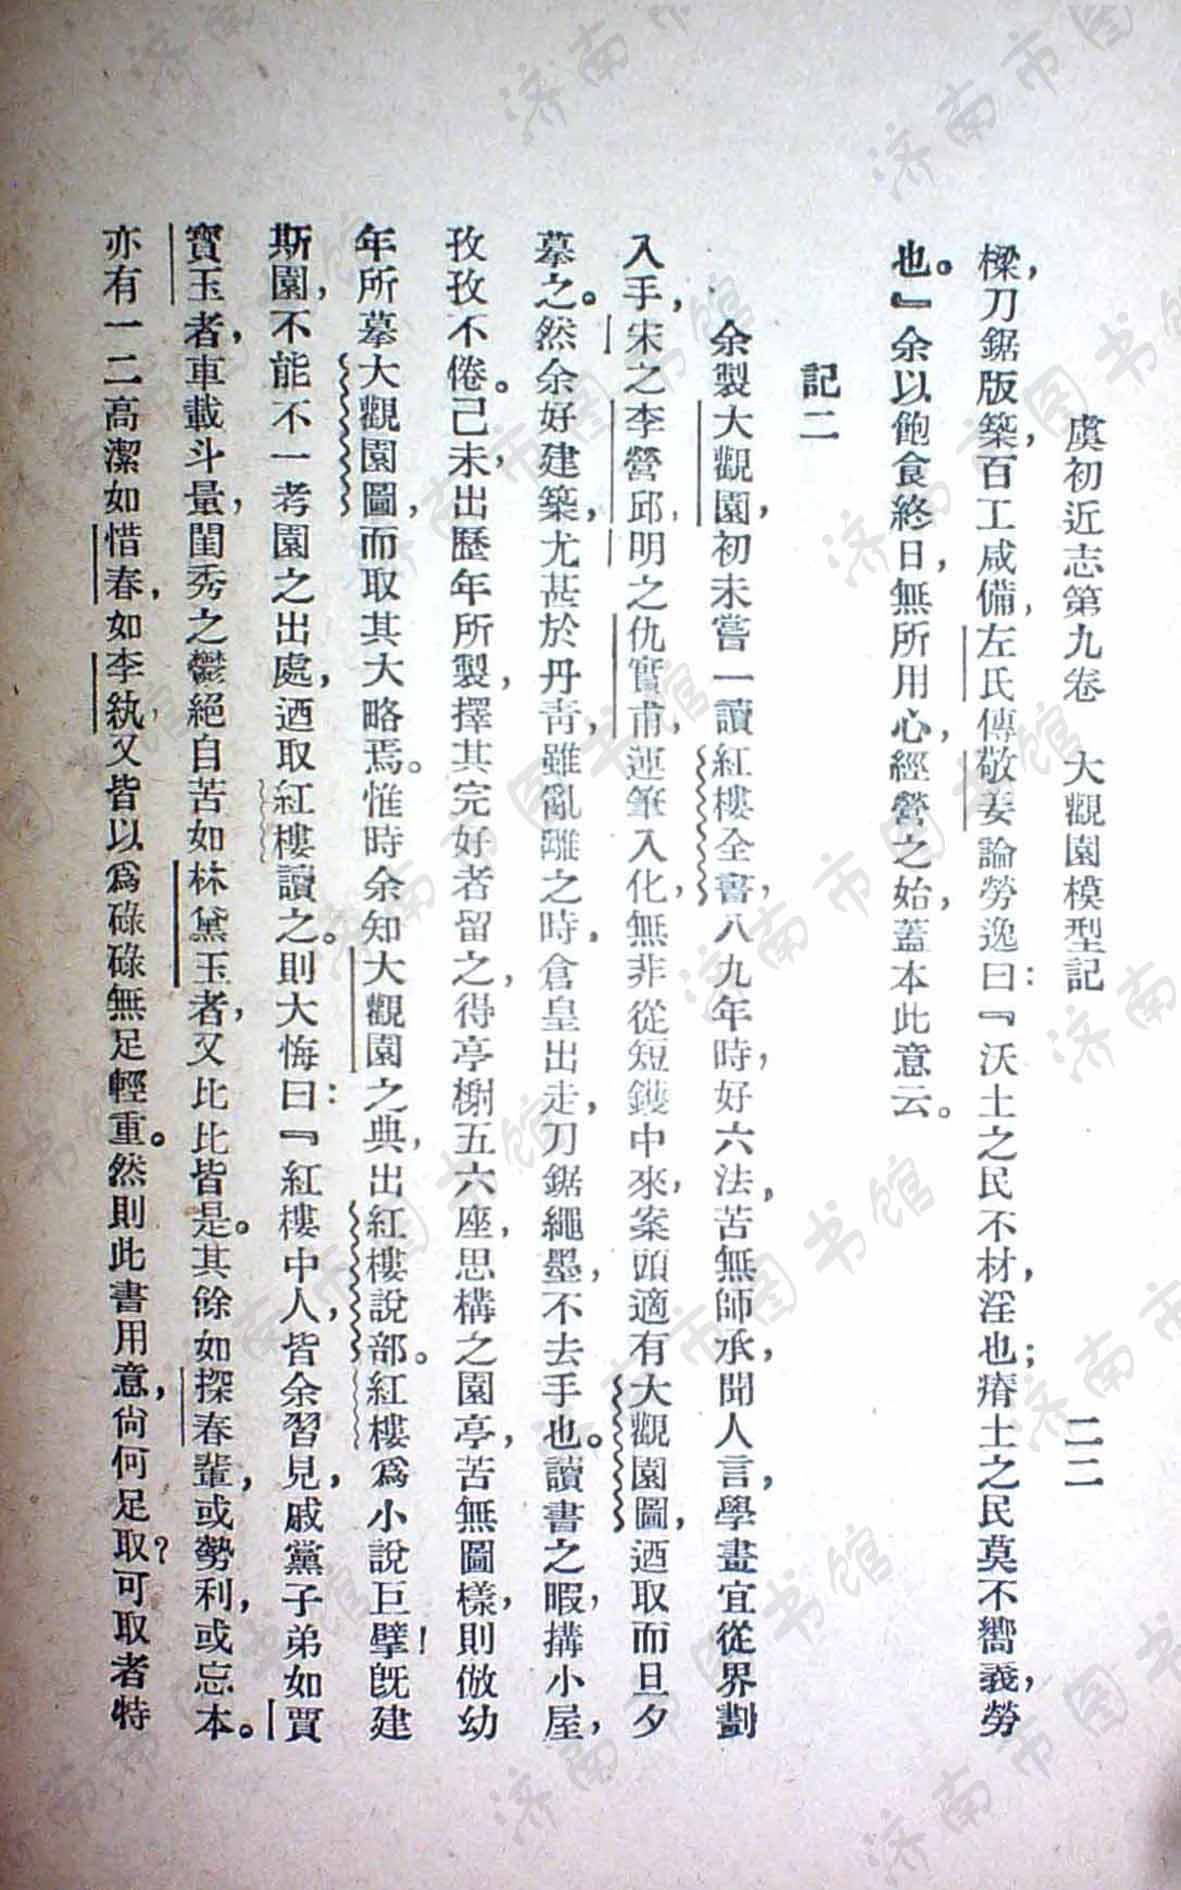 虞初近志第九卷　大觀園模型記　二二
樑，刀鋸版築，百工咸備，左氏傳敬姜論勞逸曰：『沃土之民不材，淫也；瘠土之民莫不嚮義，勞
也。』余以飽食終日，無所用心，經營之始，蓋本此意云。
記二
余製大觀園，初未嘗一讀紅樓全書，八九年時，好六法，苦無師承，聞人言，學畫宜從界劃
入手，宋之李營邱，明之仇實甫，運筆入化，無非從短鑊中來，案頭適有大觀園圖，迺取而旦夕
摹之。然余好建築，尤甚於丹靑，雖亂離之時，倉皇出走，刀鋸繩墨，不去手也。讀書之暇，搆小屋，
孜孜不倦。己未，出歷年所製，擇其完好者留之，得亭榭五六座，思構之園亭，苦無圖樣，則倣幼
年所摹大觀園圖，而取其大略焉。惟時余知大觀園之典，出紅樓說部。紅樓爲小說巨擘！旣建
斯園，不能不一考園之出處，迺取紅樓讀之。則大悔曰：『紅樓中人，皆余習見，戚黨子弟如賈
寶玉者，車載斗量，閨秀之鬱絕自苦如林黛玉者，又比比皆是。其餘如探春輩，或勢利，或忘本。
亦有一二高潔如惜春，如李紈，又皆以爲碌碌無足輕重。然則此書用意，尙何足取？可取者特
济南市图书馆